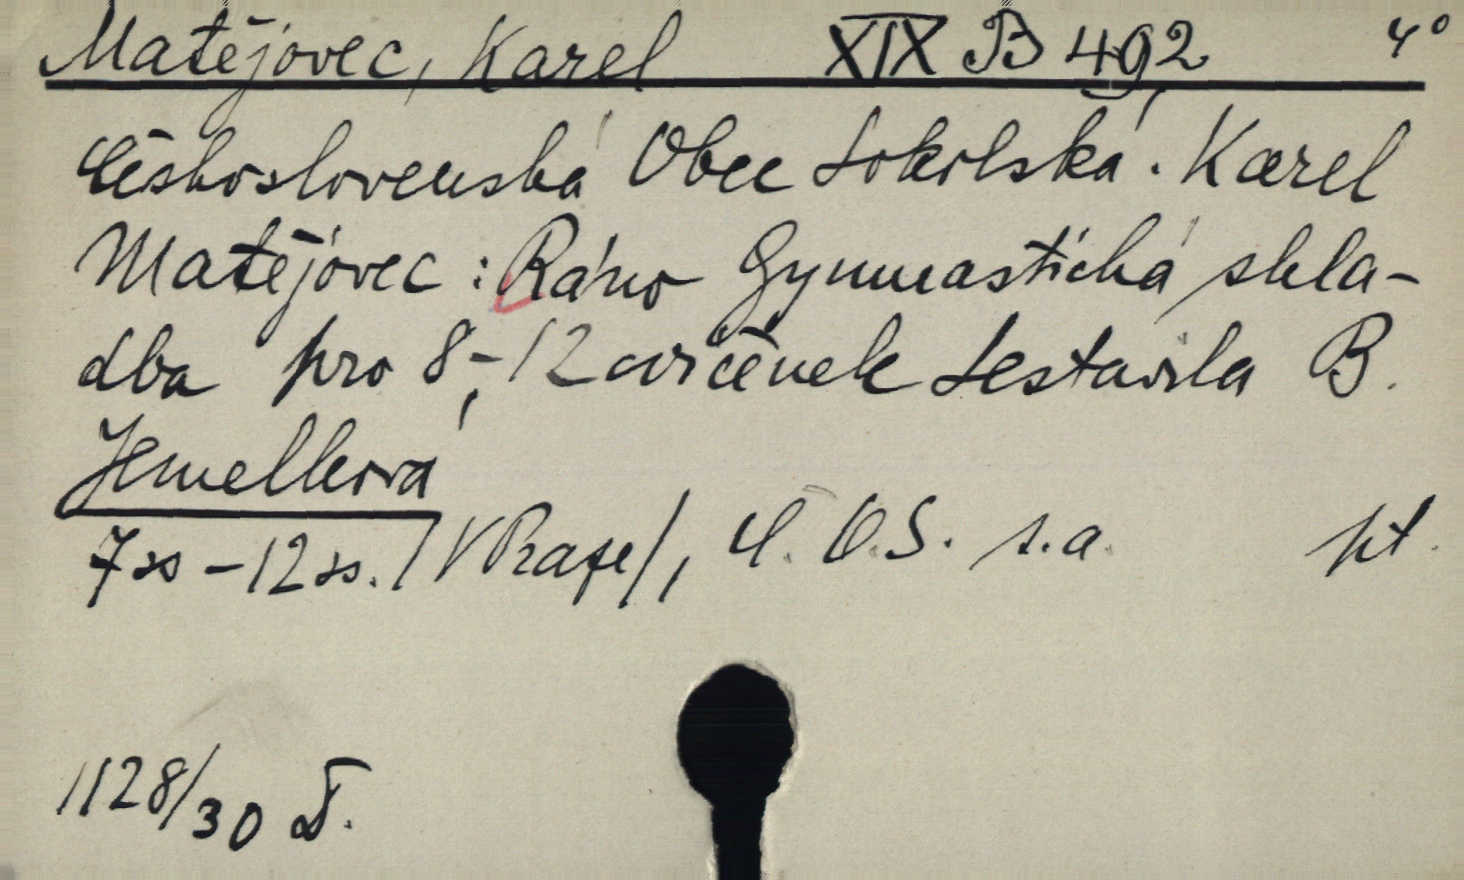 Matějovec, Karel XIX B 492 4°
Československá Obec Sokolská. Karel
Matějovec: Ráno Gymnastická skla-
dba pro 8-12 cvičenek sestavila B.
Jemelková
7 ss - 12 ss. / V Praze /, Č. O. S. s.a. pt.
1128/30 D.